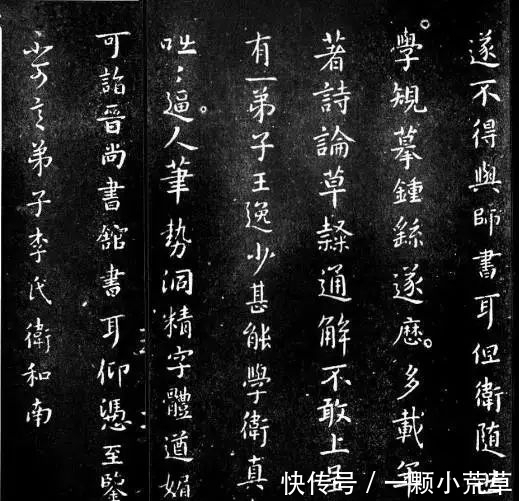 遂不得與師書耳但衛隨
學規摹鍾繇遂歷多載年
著詩論草隸通解不敢上呈
有一弟子王逸少甚能學衛真
咄咄逼人筆勢洞精字體遒媚
可詣晉尚書館書耳仰憑至鑒
弟子李氏衛和南
快传号/一颗小荒草